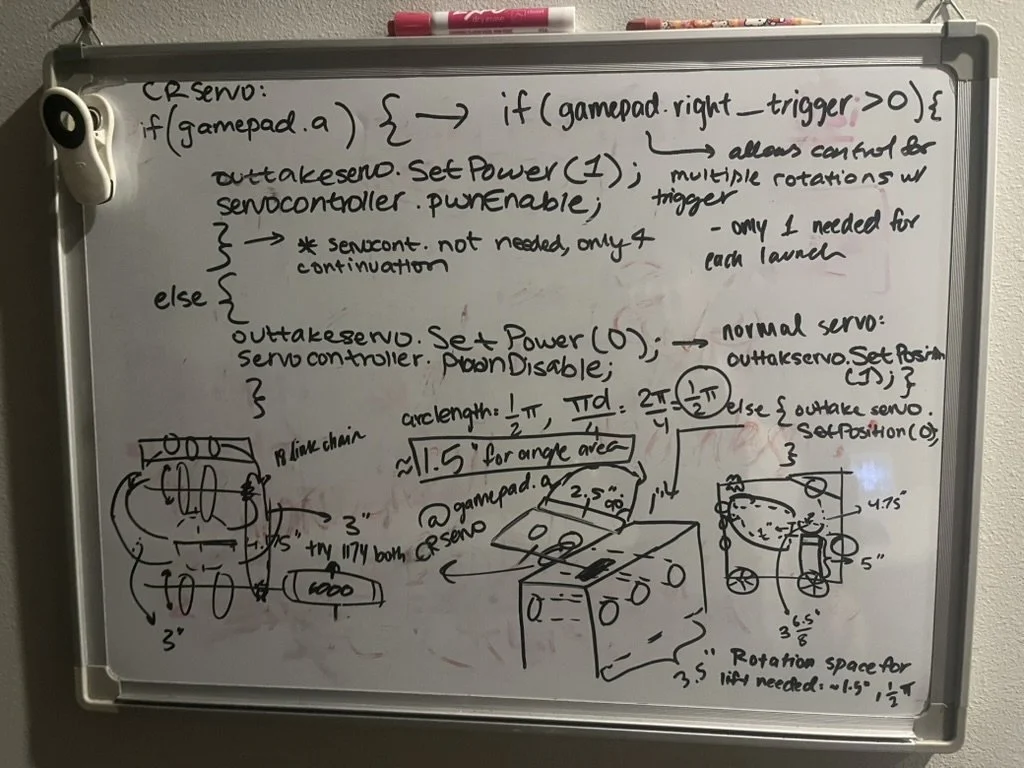 CRservo:
if(gamepad.a) { → if(gamepad.right_trigger>0){
↳ allows control for
multiple rotations w/
trigger
- only 1 needed for
each launch
outtakeservo.SetPower(1);
servocontroller.pwnEnable;
} → * servocont. not needed, only 4
continuation
else {
outtakeservo.SetPower(0); → normal servo:
servocontroller. Disable;
}
outtakservo.SetPosition
(1); }
else { outtake servo.
SetPosition(0);
}
arclength: 1/2 π, πd/4 = 2π/4 = 1/2 π
≈ 1.5" for angle area
@gamepad.a
CRservo
18 link chain
3"
.75" try 1174 both
6000
3"
2.5"
1"
3.5"
4.75"
5"
3 6.5"/8
Rotation space for
lift needed: ~1.5", 1/2 π